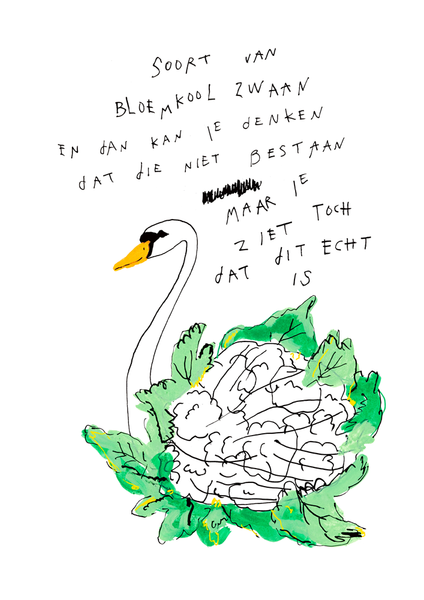 SOORT VAN
BLOEMKOOL ZWAAN
EN dAN KAN IE dENKEN
dAT dIE NIET BESTAAN
MAAR IE
ZIET TOCH
dAT dIT ECHT
IS